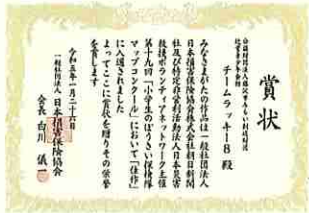 賞状
公益財団法人藤沢市みらい創造財団
チームラッキー８ 殿
みなさまがたの作品は一般社団法人
日本損害保険協会株式会社朝日新聞
社及び特定非営利活動法人日本災害
救援ボランティアネットワーク主催
第十九回「小学生のぼうさい探検隊
マップコンクール」において「佳作」
に入選されました
よってここに賞状を贈りその栄誉
を賞します
令和五年一月二十六日
一般社団法人 日本損害保険協会
会長 白川 儀一